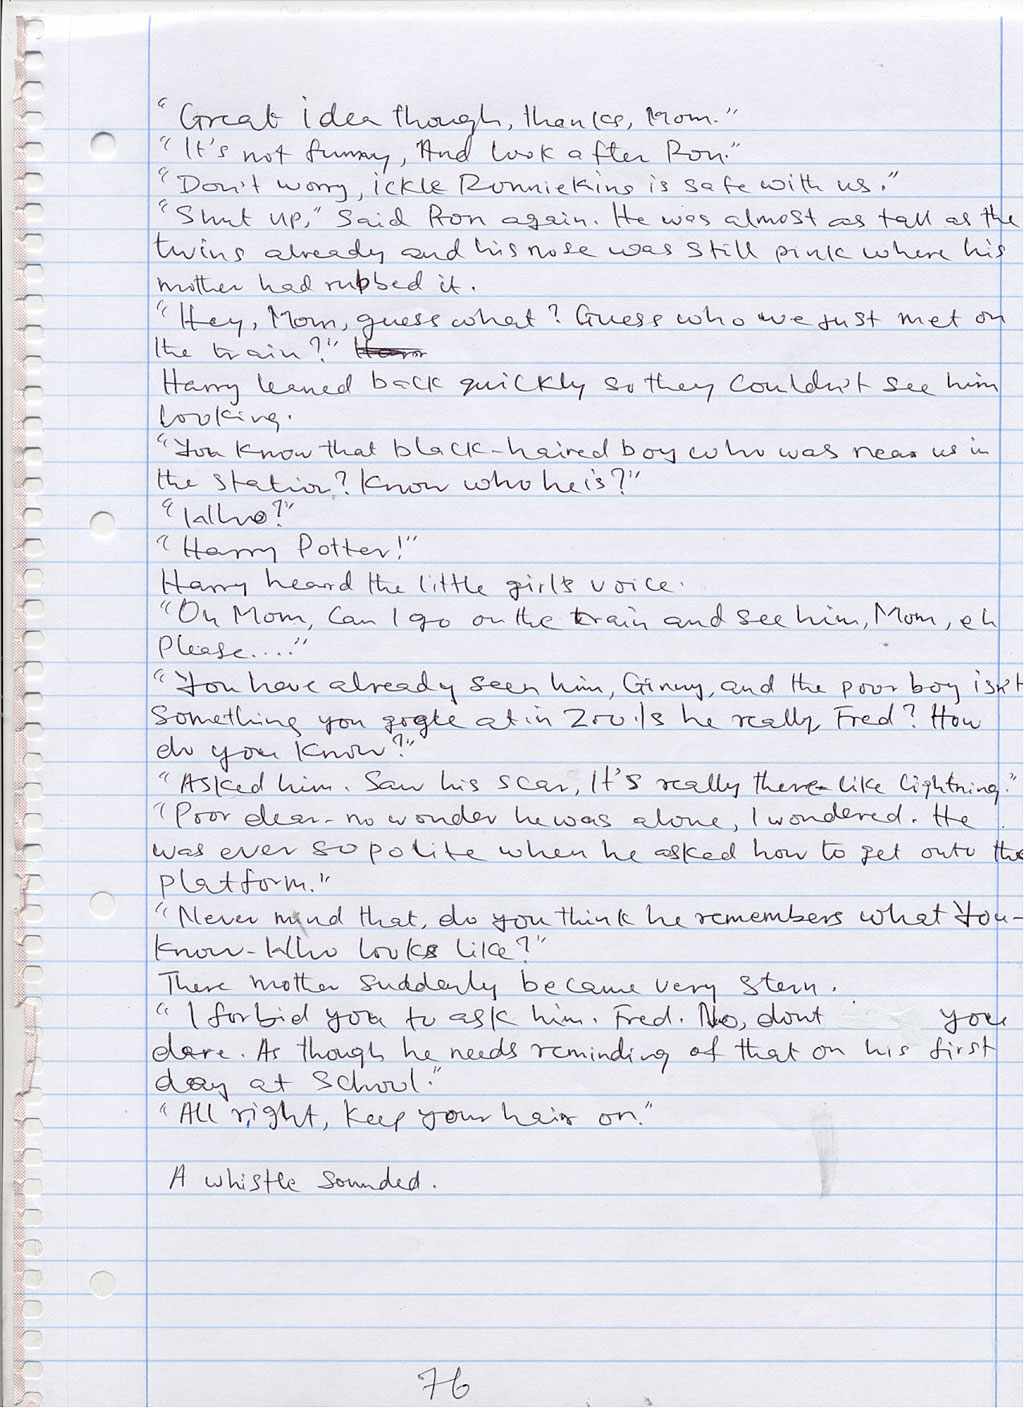 "Great idea though, thanks, Mom."
"It's not funny, And look after Ron."
"Don't worry, ickle Ronniekins is safe with us."
"Shut up," said Ron again. He was almost as tall as the
twins already and his nose was still pink where his
mother had rubbed it.
"Hey, Mom, guess what? Guess who we just met on
the train?"
Harry leaned back quickly so they couldn't see him
looking.
"You know that black-haired boy who was near us in
the station? Know who he is?"
"Who?"
"Harry Potter!"
Harry heard the little girl's voice.
"Oh Mom, Can I go on the train and see him, Mom, eh
Please...."
"You have already seen him, Ginny, and the poor boy isn't
Something you gogle at in Zoo. Is he really, Fred? How
do you know?"
"Asked him. Saw his scar, It's really there - like lightning."
"Poor dear - no wonder he was alone, I wondered. He
was ever so polite when he asked how to get onto the
platform."
"Never mind that, do you think he remembers what You-
Know-Who looks like?"
There mother suddenly became very stern.
"I forbid you to ask him. Fred. No, dont you
dare. As though he needs reminding of that on his first
day at school."
"All right, keep your hair on."
A whistle sounded.
76